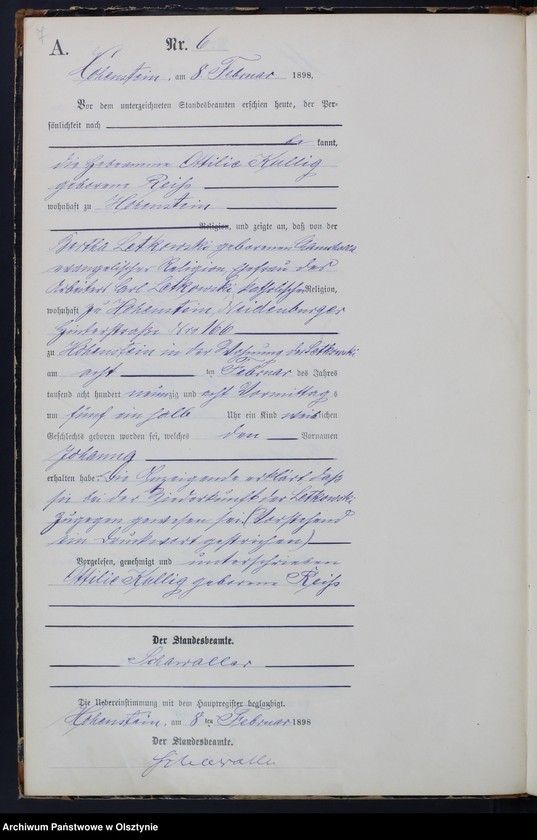 7
A.
Nr. 6
Hohenstein, am 8. Februar 1898.
Vor dem unterzeichneten Standesbeamten erschien heute, der Per-
sönlichkeit nach
be kannt,
die Hebeamme Ottilie Kallig
geborene Reiß
wohnhaft zu Hohenstein
Religion, und zeigte an, daß von der
Bertha Letkowski geborenen
evangelischer Religion, Ehefrau des
Arbeiters Carl Letkowski katholischer Religion,
wohnhaft zu Hohenstein, Neidenburger
Hinterstraße Nro 166
zu Hohenstein in der Wohnung der Letkowski
am acht ten Februar des Jahres
tausend acht hundert neunzig und acht Vormittags
um fünf ein halb Uhr ein Kind weiblichen
Geschlechts geboren worden sei, welches den Vornamen
Johanna
erhalten habe. Die Anzeigende erklärt daß
sie bei der Niederkunft der Letkowski
zugegen gewesen sei (Vorstehend
ein Druckwort gestrichen)
Vorgelesen, genehmigt und unterschrieben
Ottilie Kallig geborene Reiß
Der Standesbeamte.
Schawaller
Die Uebereinstimmung mit dem Hauptregister beglaubigt.
Hohenstein, am 8 ten Februar 1898
Der Standesbeamte.
Schawaller
Archiwum Państwowe w Olsztynie